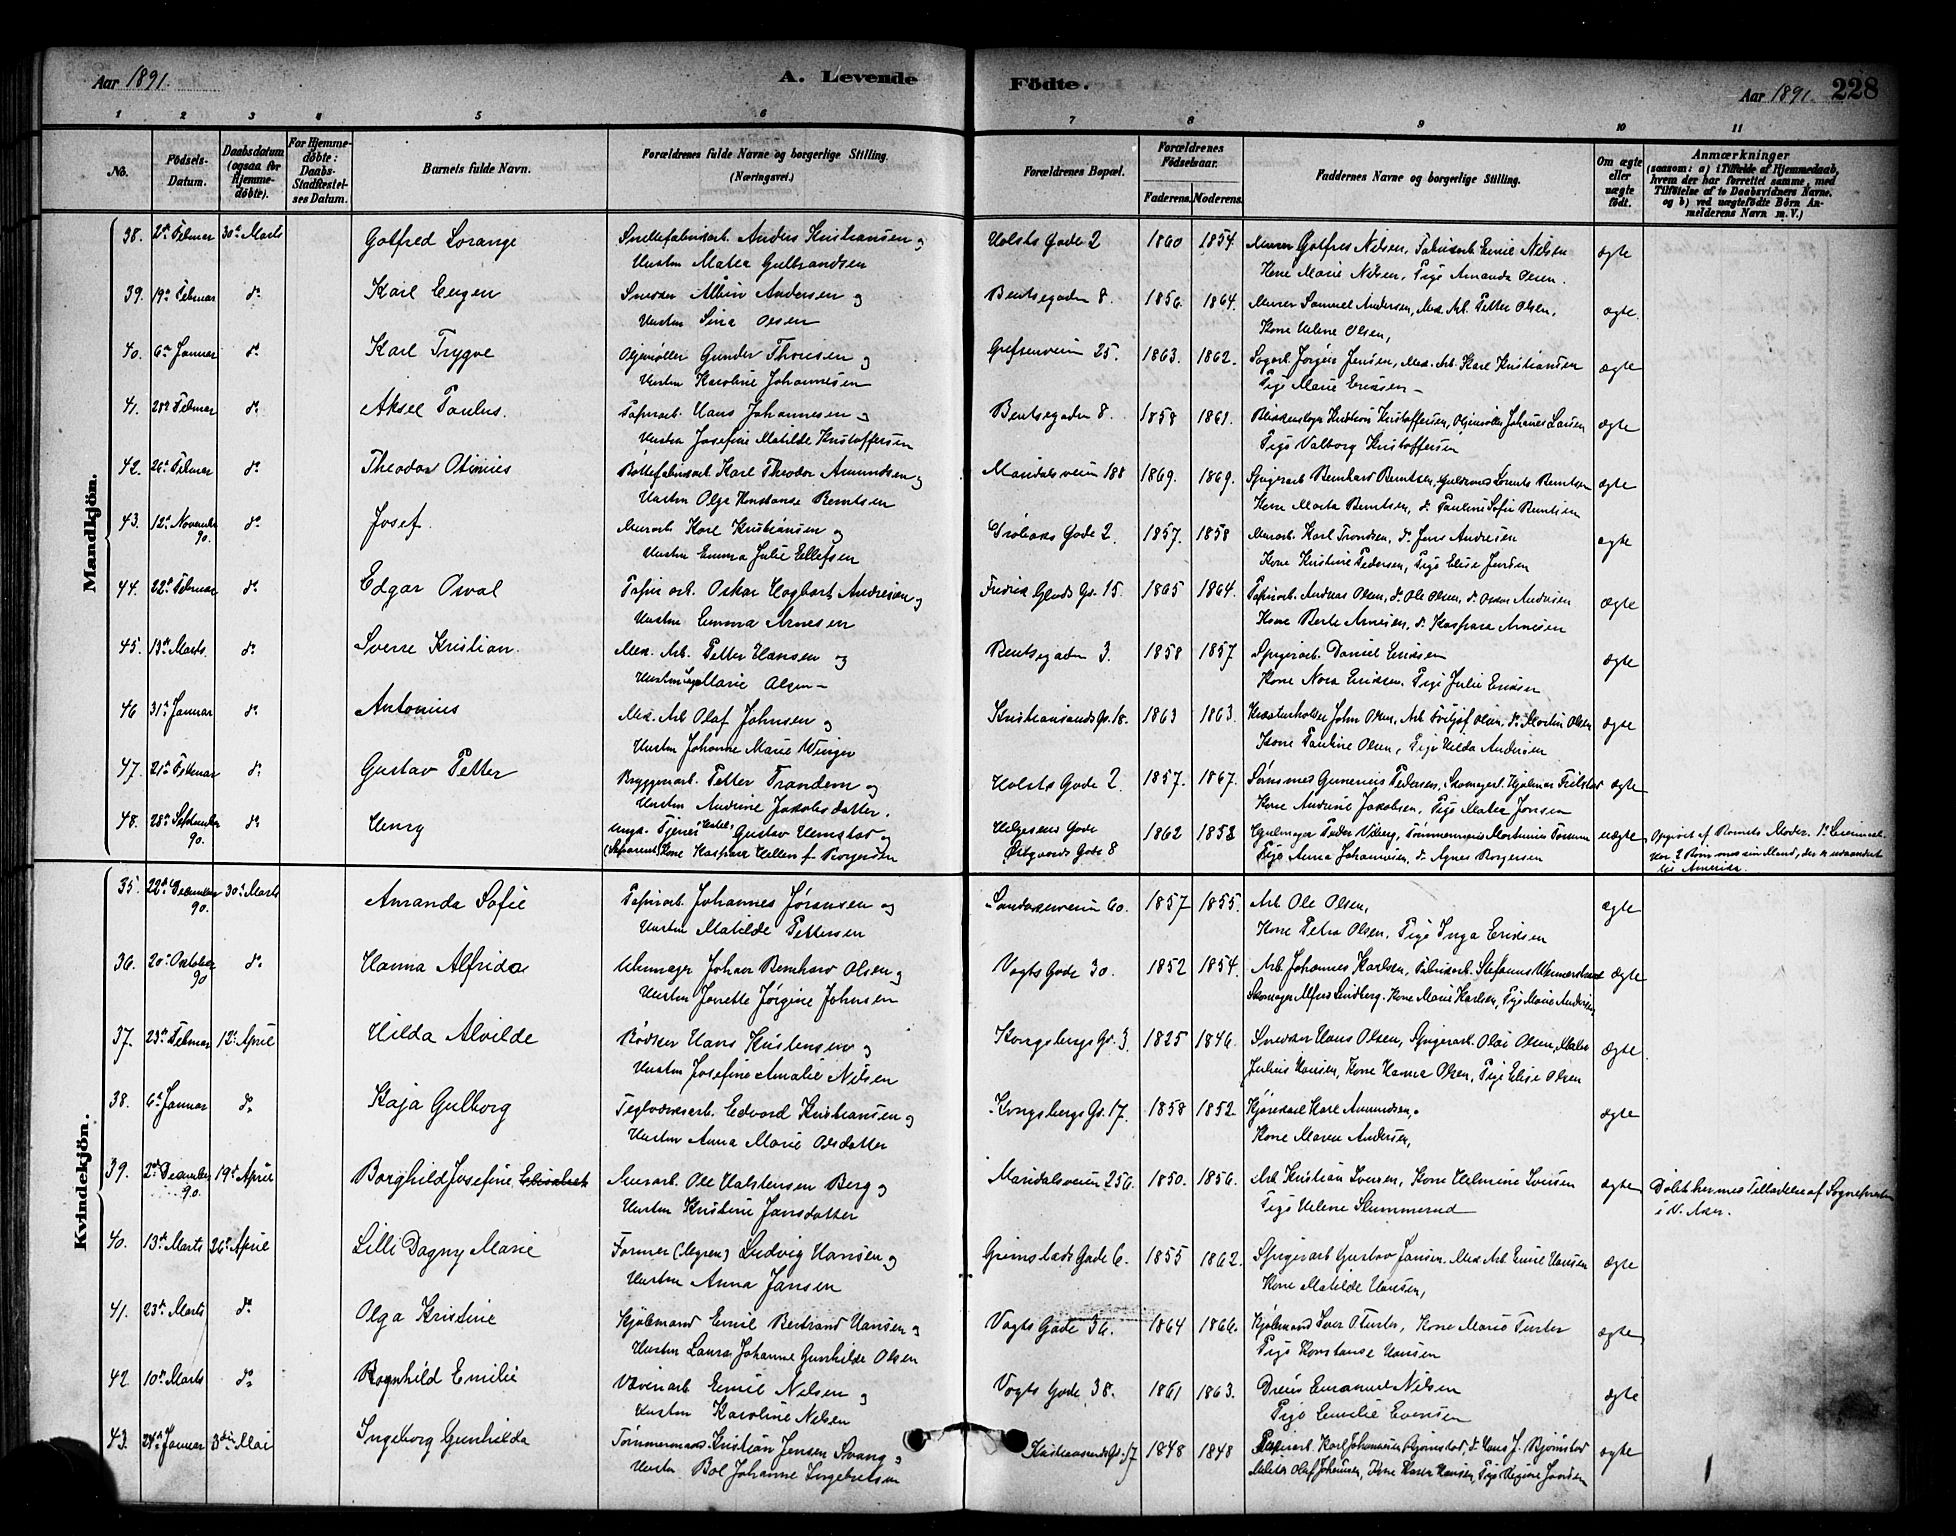 Aar 1891.
A. Levende
Födte.
Aar 1891.
228
1 2 3 4 5 6 7 8 9 10 11
No.
Födsels-Datum.
Daabsdatum (ogsaa for Hjemmedöbte).
For Hjemmedöbte: Daabs-Stadfæstelses Datum.
Barnets fulde Navn.
Forældrenes fulde Navne og borgerlige Stilling. (Næringsvei.)
Forældrenes Bopæl.
Forældrenes Födselsaar.
Faderens. Moderens.
Faddernes Navne og borgerlige Stilling.
Om ægte eller uægte födt.
Anmærkninger
(saasom: a) i Tilfælde af Hjemmedaab,
hvem der har forrettet samme, med
Tilföielse af to Daabsvidners Navne,
og b) ved uægtefödte Börn Anmelderens Navn m. V.)
Mandkjön.
38. Februar 30te Marts Gotfred Lorange Anders Kristiansen og Holsts Gade 2 1860 1854. Murer Gotfred Nilsen, Fabrikarb. Nilsen ægte
Hustru Mathea Gulbrandsen Kone Marie Nilsen, Pige Amanda Olsen.
39. 19de Februar do Karl Eugen Snedker Albin Andersen og Bentsegaden 8. 1856. 1864. Murer Samuel Andersen, Mek. Arb. Petter Olsen, ægte.
Hustru Sina Olsen Kone Helene Olsen,
40. 6te Januar do Karl Trygve Gunder Thoresen og Grefsenveien 25. 1863. 1862. Jensen, Mek. Arb. Karl Kristiansen ægte
Hustru Karoline Johannesen Pige Marie Eriksen
41. Februar do Aksel Paulus. Papirarb. Hans Johannesen og Bentsegaden 8. 1858 1861. Kristoffersen, Johannes Larsen ægte
Hustru Josefine Matilde Kristoffersen Pige Valborg Kristoffersen
42. Februar do Theodor Karl Theodor Amundsen og Maridalsveien 188 1869. 1869. Spigerarb Bernhard Berntsen, Berntsen ægte
Hustru Olga Konstanse Berntsen Kone Marta Berntsen, do Pauline Sofie Berntsen
43. 12te November 90. do Josef. Murarb. Karl Kristiansen og Gade 2. 1857. 1858 Murarb. Karl Trondsen, do Jens Andresen ægte
Hustru Emma Julie Ellefsen Kone Kristine Pedersen, Pige Elise
44. 22de Februar do Edgar Osval Papirarb. Oskar Hagbart Andresen og Fredrik Glads Gd. 15. 1865 1864. Papirarb. Andreas Olsen, do Ole Olsen, do Oskar Andresen ægte
Hustru Emma Arnesen Kone Berte Arnesen, do Kaspara Arnesen
45. 13de Marts. do Sverre Kristian. Mek. Arb. Petter Hansen og Bentsegaden 3. 1858 1857 Spigerarb. Daniel Eriksen ægte
Hustru Marie Olsen Kone Nora Eriksen. Pige Julie Eriksen
46 31te Januar do Antonius Mek. Arb Olaf Johnsen og Kristiansands Gd. 18. 1863 1863. John Olsen, Arb Olsen, do Martin Olsen ægte
Hustru Johanne Marie Winger Kone Pauline Olsen, Pige Hilda Andersen
47. Februar do Gustav Petter Bryggerarb. Petter Trandem og Holsts Gade 2. 1857. 1867. Pedersen, Skomager. Hjalmar ægte
Hustru Andrine Jakobsdatter. Kone Andrine Jakobsen, Pige Mathea Jensen
48. September 90. do Henry Ungk. Tjener Gustav og Helgesens Gade 1862 1852 Peder Viberg, Tømmermand uægte
(Separeret) Kone Kaspara Ellen f. Borgersen Østgaards Gade 8 Pige Anna Johannesen, do Agnes Borgersen
Opgivet af Barnets Moder.
Amerika.
Kvindekjön.
35. 22de December 90. 30te Marts Amanda Sofie Papirarb. Johannes Jøransen og Sandakerveien 60. 1857 1855. Arb. Ole Olsen, ægte
Hustru Matilde Pettersen Kone Petra Olsen, Pige Inga Eriksen
36. 20de Oktober 90 do Hanna Alfrida Uhrmager Johan Bernhard Olsen og Vogts Gade 30. 1852 1854. Arb. Johannes Karlsen, Fabrikarb. ægte
Hustru Janette Jørgine Johnsen Skomager Lindberg. Kone Marie Karlsen, Pige Marie Andersen
37. 23de Februar 12te April Hilda Alvilde Bødker Hans Kristensen og Kongsbergs Gd. 3. 1825 1846. Snedker Hans Olsen, Spigerarb. Olai Olsen, Maler ægte
Hustru Josefine Amalie Nilsen Julius Hansen, Kone Hanna Olsen, Pige Elise Olsen
38. 6te Januar do Kaja Gulborg Teglværksarb. Edvard Kristiansen og Kongsbergs Gd. 17. 1858 1852. Kjørekarl Karl Amundsen, ægte
Hustru Anna Marie Olsdatter Kone Maren Andersen,
39. 2den December 90. 19de April Borghild Josefine Elisabeth Murarb. Ole Halstensen Berg og Maridalsveien 256. 1850. 1856. Arb Kristian Iversen, Kone Helmine Iversen ægte
Hustru Kristine Jansdatter Pige Helene Slummerud
Døbt hermes Tilladelse af Sognepresten
i N. Aker.
40. 13de Marts 26de April Lilli Dagny Marie Former (Myren) Ludvig Hansen og Grimstads Gade 6. 1855 1862. Spigerarb Gustav Jansen, Mek. Arb. Emil Hansen ægte
Hustru Anna Jansen Kone Matilde Hansen,
41. 23de Marts do Olga Kristine Kjølemand Emil Bertrand Hansen og Vogts Gade 36. 1864 1866. Kone Marie ægte
Hustru Laura Johanne Gunhilde Olsen Pige Konstanse Hansen
42 10de Marts do Ragnhild Emilie Væveriarb. Emil Nilsen og Vogts Gade 38. 1861 1863. Dreier Emanuel Nilsen ægte
Hustru Karoline Nilsen Pige Emilie Evensen
43. Januar 3die Mai Ingeborg Gunhilda Tømmermand. Kristian Jensen Svang og Kristiansands Gd. 17 1848 1848 Papirarb. Karl Johannesen Bjørnstad, do Hans J. Bjørnstad ægte
Hustru Bol Johanne Ingebretsen Olaf Johannesen, Kone Hansen, Pige Regine